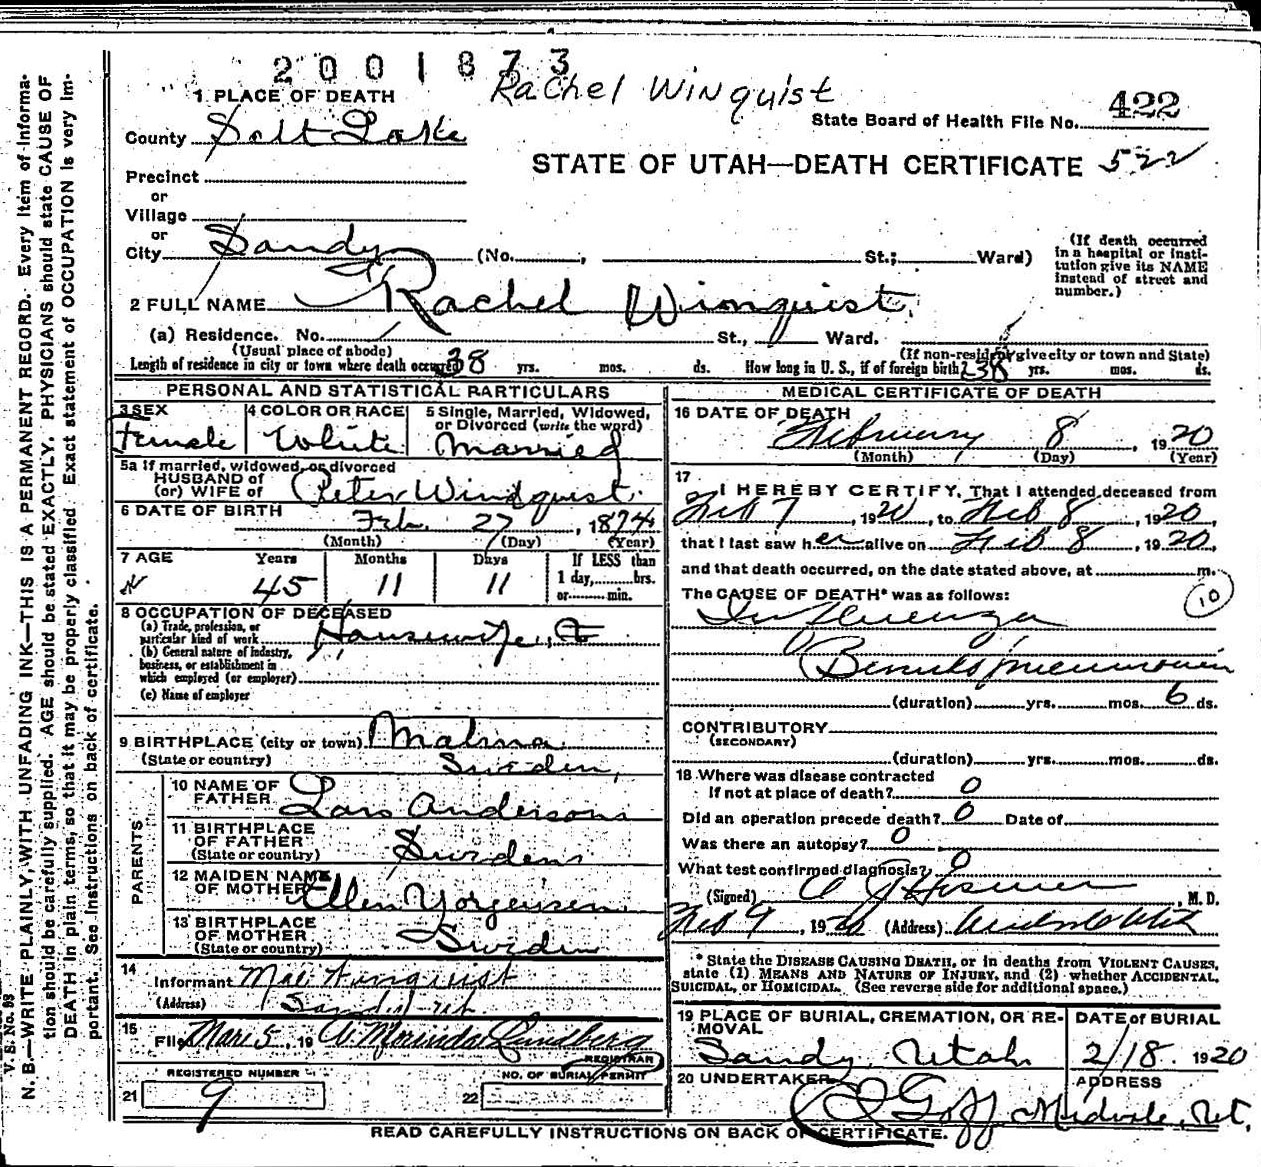 2001873
Rachel Winquist
1 PLACE OF DEATH
County Salt Lake
State Board of Health File No. 422
STATE OF UTAH—DEATH CERTIFICATE 522
Precinct
or
Village
or
City Sandy (No. , St.; Ward)
(If death occurred in a hospital or institution give its NAME instead of street and number.)
2 FULL NAME Rachel Winquist
(a) Residence. No. St., Ward.
(Usual place of abode) (If non-resident give city or town and State)
Length of residence in city or town where death occurred 38 yrs. mos. ds. How long in U. S., if of foreign birth? 38 yrs. mos. ds.
PERSONAL AND STATISTICAL PARTICULARS
3 SEX Female
4 COLOR OR RACE White
5 Single, Married, Widowed, or Divorced (write the word) Married
5a If married, widowed, or divorced
HUSBAND of
(or) WIFE of Peter Windquist
6 DATE OF BIRTH Feb. 27, 1874
(Month) (Day) (Year)
7 AGE Years 45 Months 11 Days 11 If LESS than 1 day, hrs. or min.
8 OCCUPATION OF DECEASED
(a) Trade, profession, or particular kind of work Housewife
(b) General nature of industry, business, or establishment in which employed (or employer)
(c) Name of employer
9 BIRTHPLACE (city or town) Malma
(State or country) Sweden
PARENTS
10 NAME OF FATHER Lars Anderson
11 BIRTHPLACE OF FATHER (State or country) Sweden
12 MAIDEN NAME OF MOTHER Ellen Yorgensen
13 BIRTHPLACE OF MOTHER (State or country) Sweden
14 Informant Mae Winquist
(Address) Sandy Ut
15 Filed Mar 5, 19 Lundberg
REGISTRAR
REGISTERED NUMBER
21 9
NO. OF BURIAL PERMIT
22
MEDICAL CERTIFICATE OF DEATH
16 DATE OF DEATH
February 8 1920
(Month) (Day) (Year)
17 I HEREBY CERTIFY, That I attended deceased from
Feb 7, 1920, to Feb 8, 1920,
that I last saw her alive on Feb 8, 1920,
and that death occurred, on the date stated above, at m.
The CAUSE OF DEATH* was as follows: 10
Influenza
Broncho pneumonia
(duration) yrs. mos. 6 ds.
CONTRIBUTORY
(SECONDARY)
(duration) yrs. mos. ds.
18 Where was disease contracted
If not at place of death? 0
Did an operation precede death? 0 Date of
Was there an autopsy? 0
What test confirmed diagnosis? 0
(Signed) , M. D.
Feb 9, 1920 (Address) Midvale Utah
* State the DISEASE CAUSING DEATH, or in deaths from VIOLENT CAUSES, state (1) MEANS AND NATURE OF INJURY, and (2) whether ACCIDENTAL, SUICIDAL, or HOMICIDAL. (See reverse side for additional space.)
19 PLACE OF BURIAL, CREMATION, OR REMOVAL
Sandy, Utah
DATE of BURIAL
2/18. 1920
20 UNDERTAKER Goff
ADDRESS
Midvale, Ut.
READ CAREFULLY INSTRUCTIONS ON BACK OF CERTIFICATE.
V. S. No. 98
N. B.—WRITE PLAINLY, WITH UNFADING INK—THIS IS A PERMANENT RECORD. Every item of information should be carefully supplied. AGE should be stated EXACTLY. PHYSICIANS should state CAUSE OF DEATH in plain terms, so that it may be properly classified. Exact statement of OCCUPATION is very important. See Instructions on back of certificate.